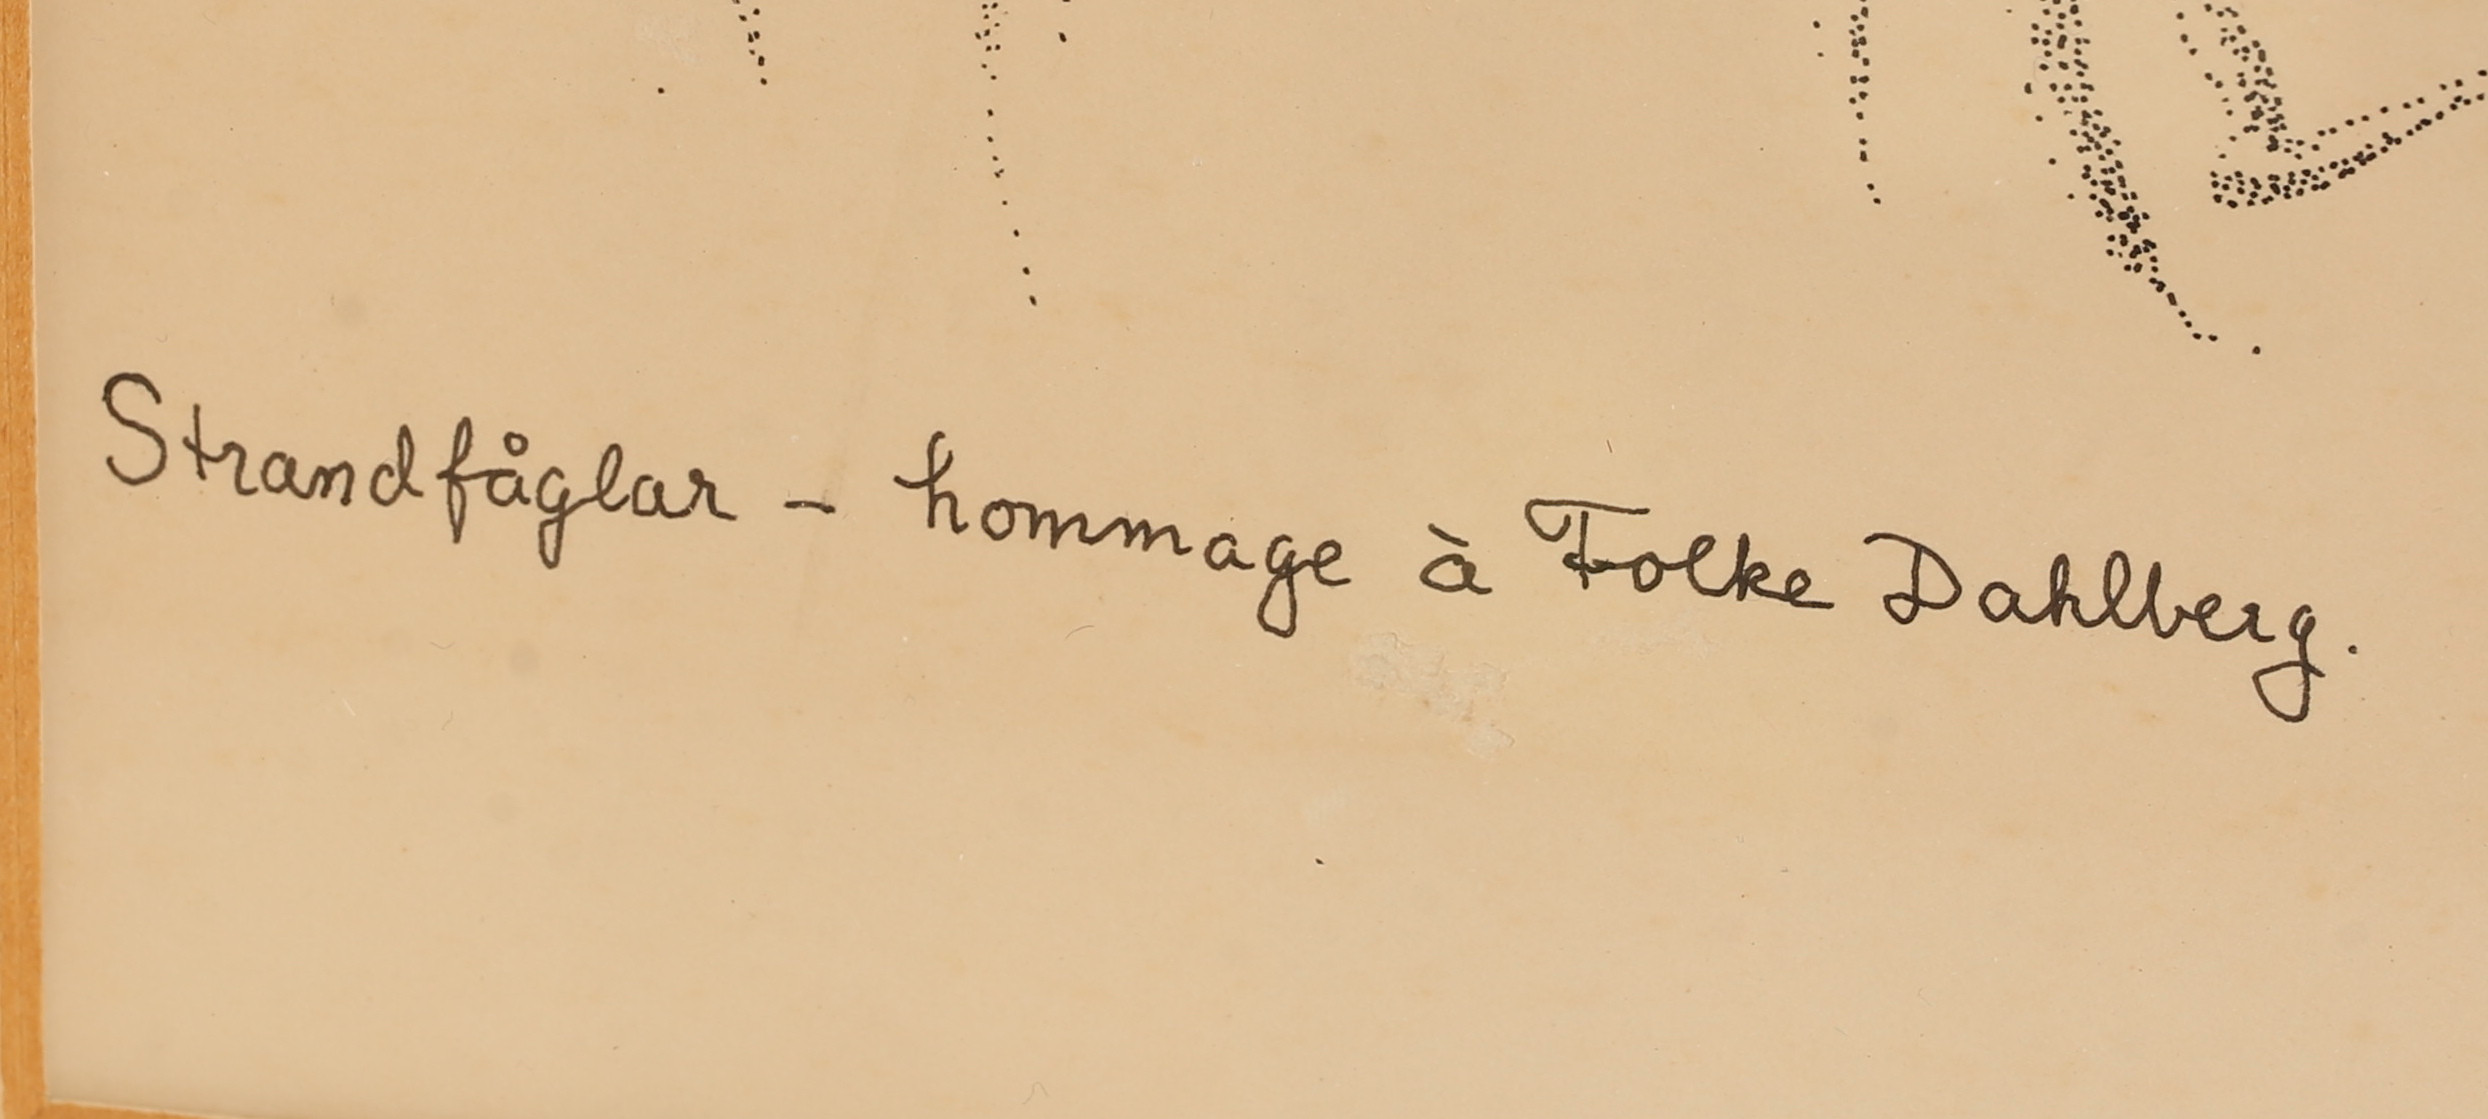 Strandfåglar - hommage à Folke Dahlberg.